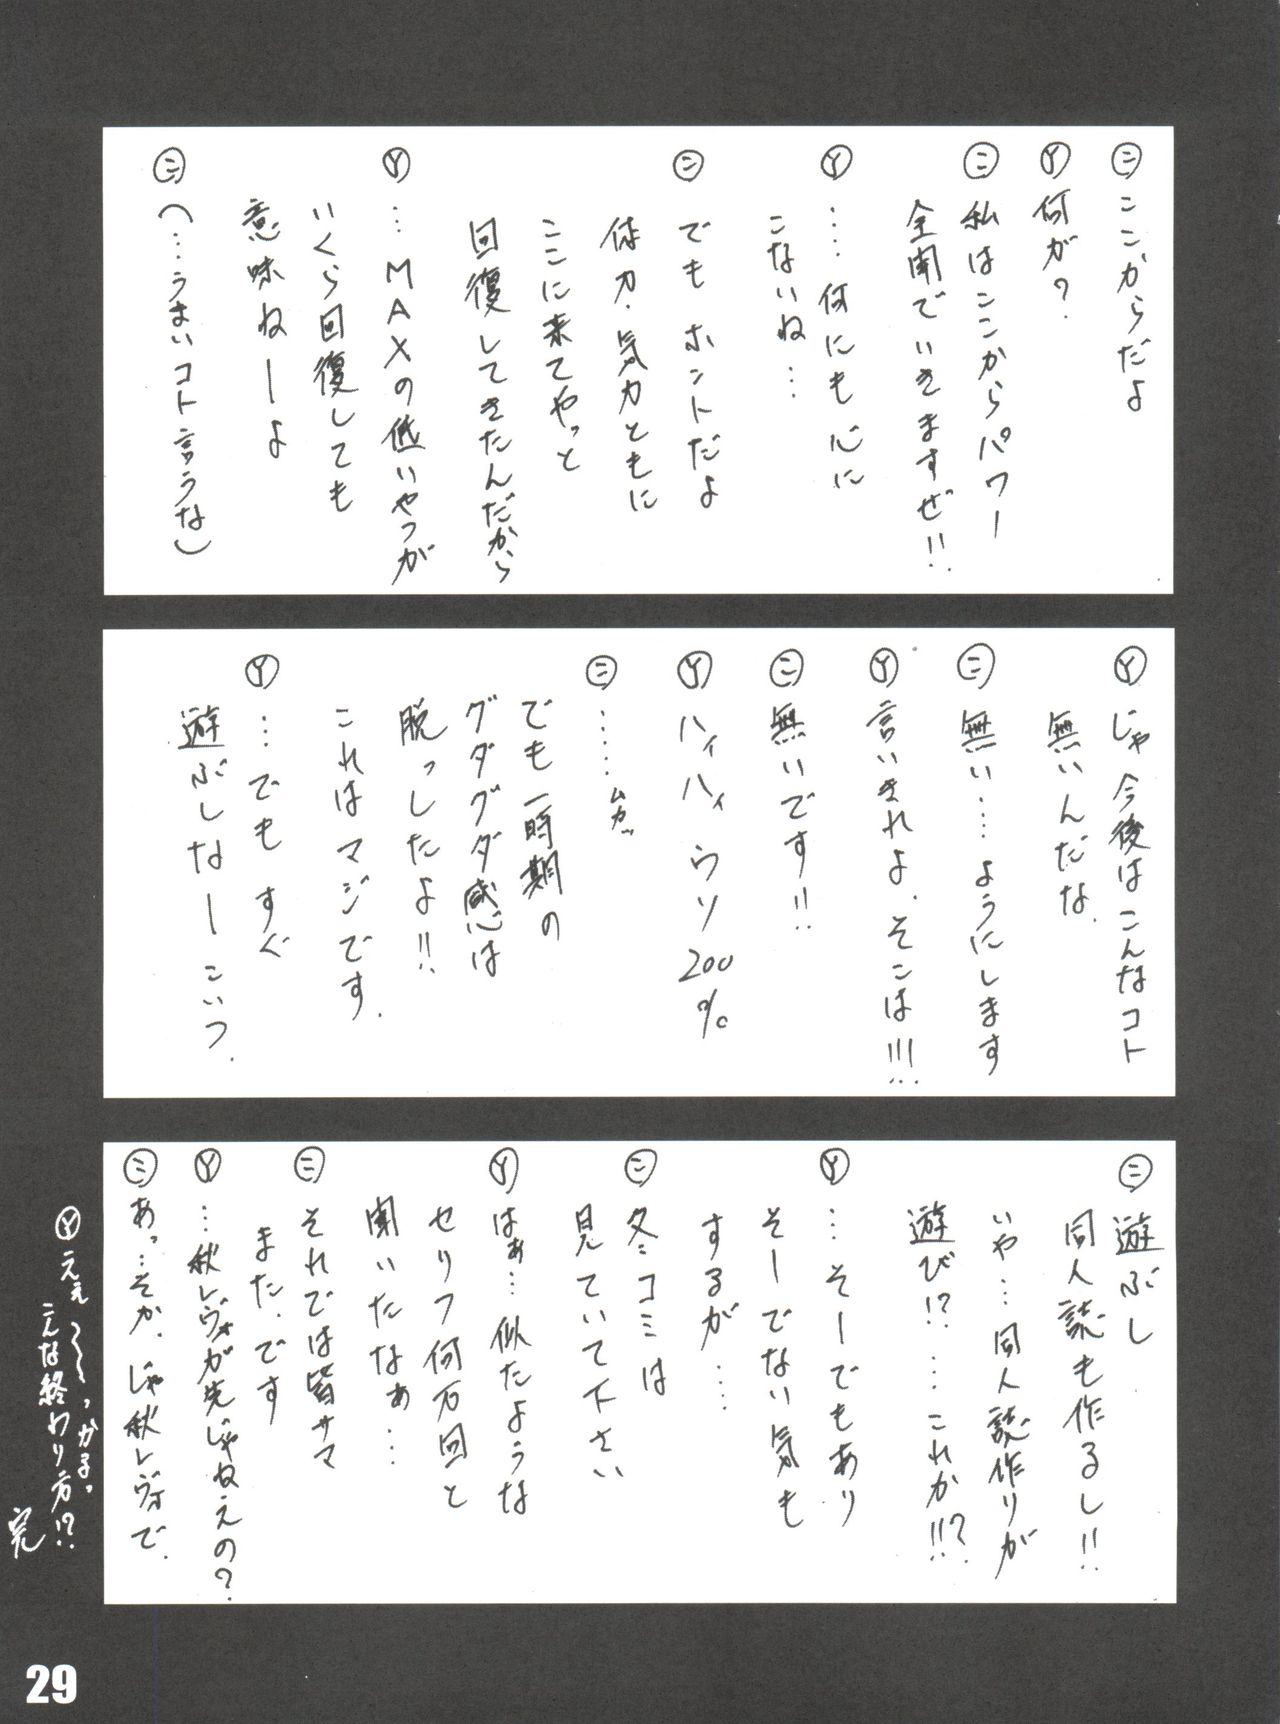 ㊁ ここからだよ
Ⓨ 何が?
㊁ 私はここからパワー
全開でいきますぜ!!
Ⓨ ‥‥何にも心に
こないね…
㊁ でもホントだよ
体力・気力ともに
ここに来てやっと
回復してきたんだから
Ⓨ …MAXの低いやつが
いくら回復しても
意味ねーよ
㊁ (…うまいコト言うな)
Ⓨ じゃ今後はこんなコト
無いんだな.
㊁ 無い‥‥ようにします
Ⓨ 言いきれよ.そこは!!!
㊁ 無いです!!
Ⓨ ハイハイ ウソ200%
㊁ ……ムカッ
でも一時期の
グダグダ感は
脱っしたよ!!
これはマジです.
Ⓨ …でもすぐ
遊ぶしなーこいつ.
㊁ 遊ぶし
同人誌も作るし!!
いや…同人誌作りが
遊び!?…これか!!?
Ⓨ …そーでもあり
そーでない気も
するが‥‥
㊁ 冬コミは
見ていて下さい
Ⓨ はぁ…似たような
セリフ何万回と
聞いたなぁ…
㊁ それでは皆サマ
また.です
Ⓨ …秋レヴォが先じゃねえの?
㊁ あっ…そか.じゃ秋レヴォで.
Ⓨ ええ～～っかるっ
こんな終わり方!?
完
29